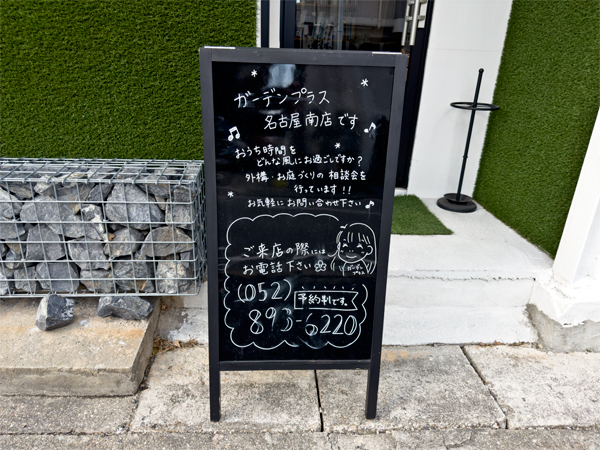 ガーデンプラス
名古屋南店です
おうち時間を
どんな風にお過ごしですか?
外構・お庭づくりの相談会を
行っています!!
お気軽にお問い合わせ下さい♪
ご来店の際には
お電話下さい
ガーデン
プラス
(052)
予約制です。
893-6220